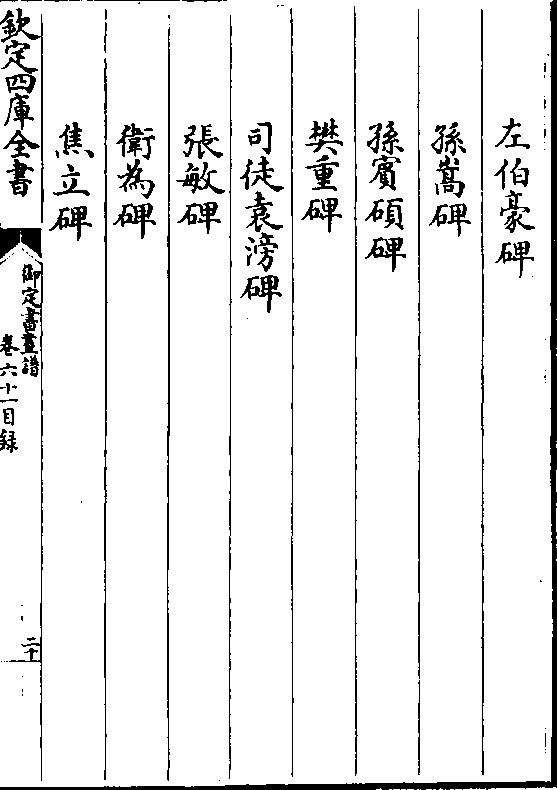 左伯豪碑
孫嵩碑
孫賓碩碑
樊重碑
司徒袁滂碑
張敏碑
衛為碑
焦立碑
欽定四庫全書
御定書畫譜
卷六十一目録
二十